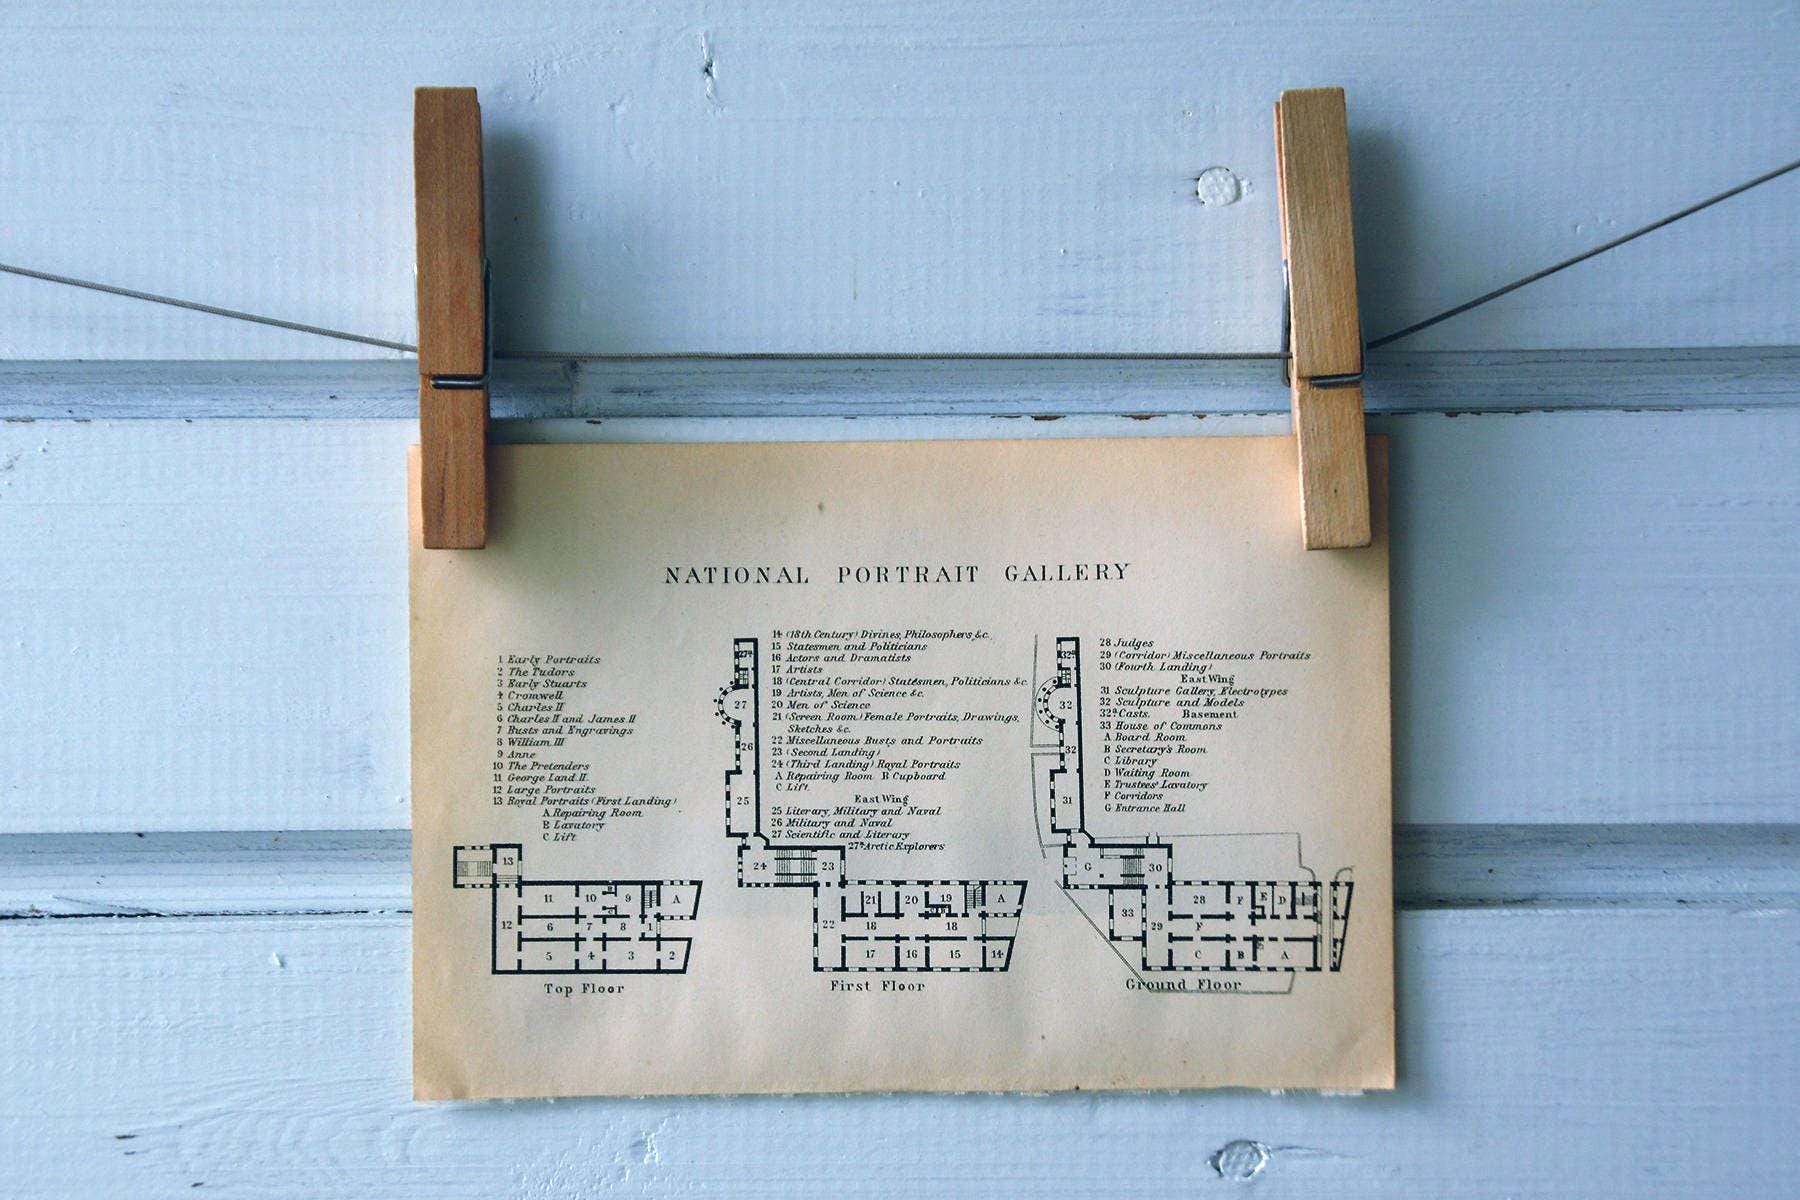 NATIONAL PORTRAIT GALLERY
1 Early Portraits
2 The Tudors
3 Early Stuarts
4 Cromwell
5 Charles II
6 Charles II and James II
7 Busts and Engravings
8 William III
9 Anne
10 The Pretenders
11 George I and II.
12 Large Portraits
13 Royal Portraits (First Landing)
A Repairing Room
B Lavatory
C Lift
13
11 10 9 A
12 6 7 8 1
5 4 3 2
Top Floor
14 (18th Century) Divines, Philosophers, &c.
15 Statesmen and Politicians
16 Actors and Dramatists
17 Artists
18 (Central Corridor) Statesmen, Politicians &c.
19 Artists, Men of Science &c.
20 Men of Science
21 (Screen Room) Female Portraits, Drawings,
Sketches &c.
22 Miscellaneous Busts and Portraits
23 (Second Landing)
24 (Third Landing) Royal Portraits
A Repairing Room B Cupboard
C Lift.
East Wing
25 Literary, Military and Naval
26 Military and Naval
27 Scientific and Literary
27a Arctic Explorers
27a
27
26
25
24 23
21 20 19 A
22 18 18
17 16 15 14
First Floor
28 Judges
29 (Corridor) Miscellaneous Portraits
30 (Fourth Landing)
East Wing
31 Sculpture Gallery, Electrotypes
32 Sculpture and Models
32a Casts. Basement
33 House of Commons
A Board Room
B Secretary's Room
C Library
D Waiting Room
E Trustees' Lavatory
F Corridors
G Entrance Hall
32a
32
32
31
G 30
28 F E D
33 29 F
C B A
Ground Floor